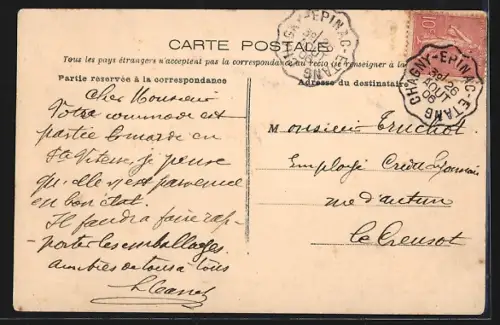 CARTE POSTALE
Tous les pays étrangers n'acceptent pas la correspondance au recto (se renseigner à la
Partie réservée à la correspondance
Adresse du destinataire
CHAGNY-EPINAC-ETANG
26
AOUT
06
CHAGNY-EPINAC-ETANG
26
AOUT
06
10c
Cher Monsieur
Votre commande est
partie
je pense
qu'elle est parvenue
en bon état.
Il faudra faire rap-
-porter les emballages.
à tous
Monsieur Truchot
Employé Crédit Lyonnais
rue d'autun
le Creusot